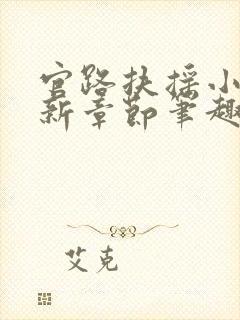 官路扶摇小
新章节笔趣
艾克